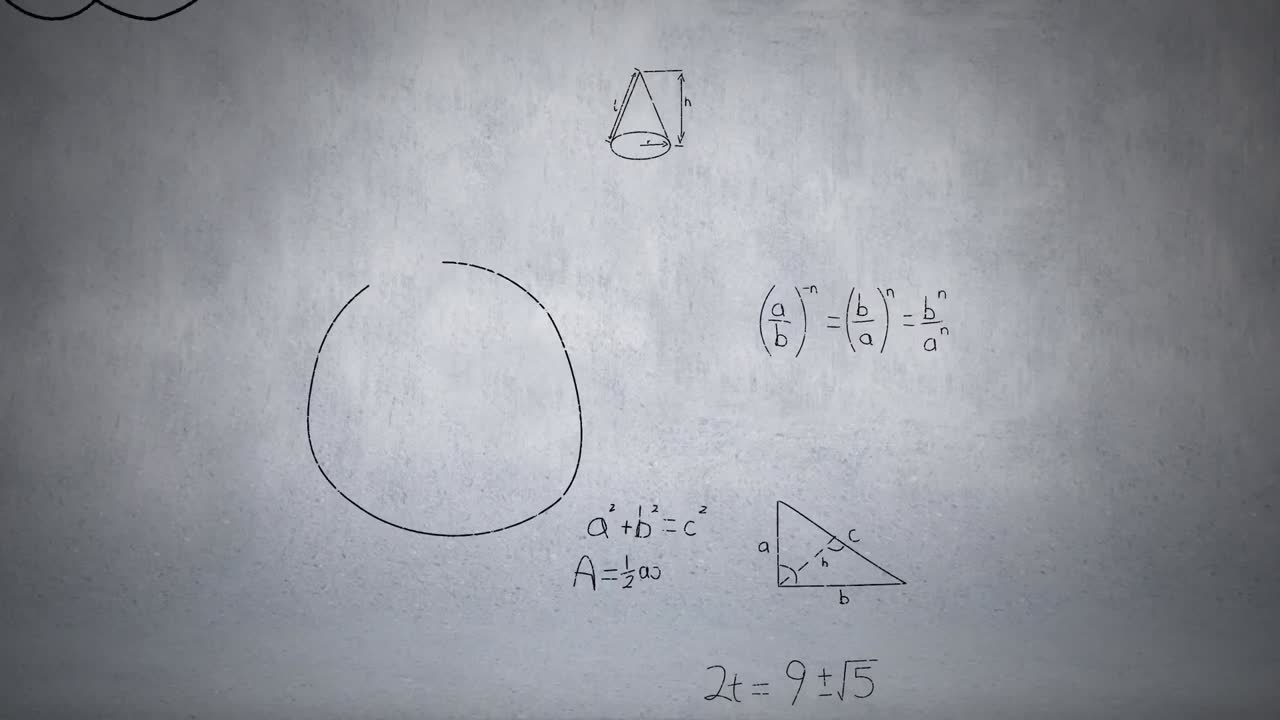 l
h
r
(a/b)⁻ⁿ = (b/a)ⁿ = bⁿ/aⁿ
a² + b² = c²
A = ½
a
c
h
b
2t = 9 ± √5